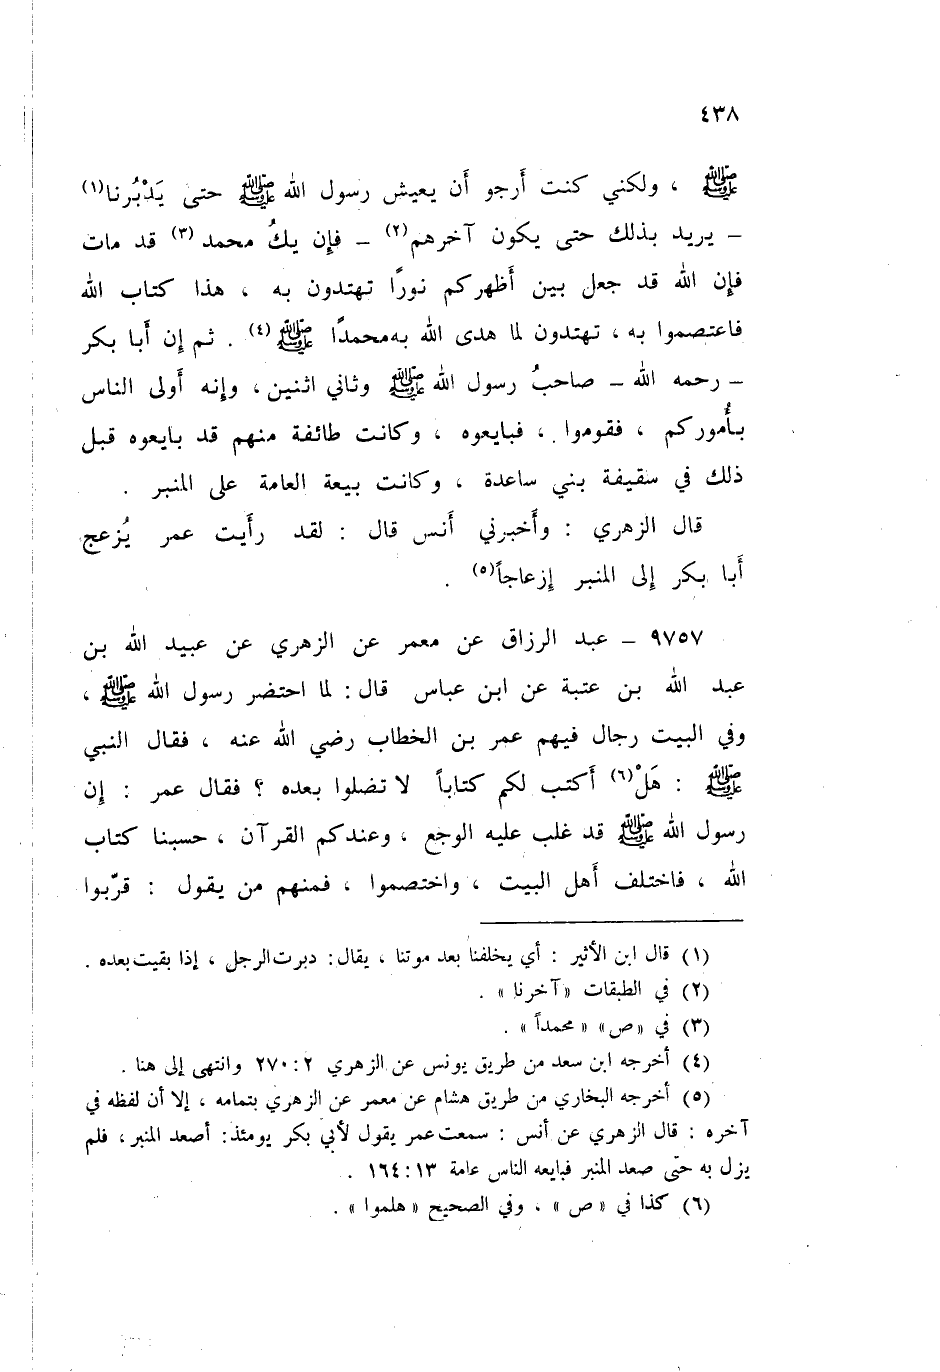 ٤٣٨
ﷺ ، ولكني كنت أرجو أن يعيش رسول الله ﷺ حتى يَدْبُرنا(١)
– يريد بذلك حتى يكون آخرهم(٢) – فإن يكُ محمد(٣) قد مات
فإن الله قد جعل بين أظهركم نورًا تهتدون به ، هذا كتاب الله
فاعتصموا به ، تهتدون لما هدى الله به محمدًا ﷺ (٤) . ثم إن أبا بكر
– رحمه الله – صاحبُ رسول الله ﷺ وثاني اثنين ، وإنه أولى الناس
بأُموركم ، فقوموا ، فبايعوه ، وكانت طائفة منهم قد بايعوه قبل
ذلك في سقيفة بني ساعدة ، وكانت بيعة العامة على المنبر .
قال الزهري : وأخبرني أنس قال : لقد رأيت عمر يُزعج
أبا بكر إلى المنبر إزعاجاً(٥) .
٩٧٥٧ – عبد الرزاق عن معمر عن الزهري عن عبيد الله بن
عبد الله بن عتبة عن ابن عباس قال : لما احتضر رسول الله ﷺ ،
وفي البيت رجال فيهم عمر بن الخطاب رضي الله عنه ، فقال النبي
ﷺ : هَلْ(٦) أكتب لكم كتاباً لا تضلوا بعده ؟ فقال عمر : إن
رسول الله ﷺ قد غلب عليه الوجع ، وعندكم القرآن ، حسبنا كتاب
الله ، فاختلف أهل البيت ، واختصموا ، فمنهم من يقول : قرّبوا
(١) قال ابن الأثير : أي يخلفنا بعد موتنا ، يقال : دبرت الرجل ، إذا بقيت بعده .
(٢) في الطبقات « آخرنا » .
(٣) في « ص » « محمداً » .
(٤) أخرجه ابن سعد من طريق يونس عن الزهري ٢ : ٢٧٠ وانتهى إلى هنا .
(٥) أخرجه البخاري من طريق هشام عن معمر عن الزهري بتمامه ، إلا أن لفظه في
آخره : قال الزهري عن أنس : سمعت عمر يقول لأبي بكر يومئذ : أصعد المنبر ، فلم
يزل به حتّى صعد المنبر فبايعه الناس عامة ١٣ : ١٦٤ .
(٦) كذا في « ص » ، وفي الصحيح « هلموا » .